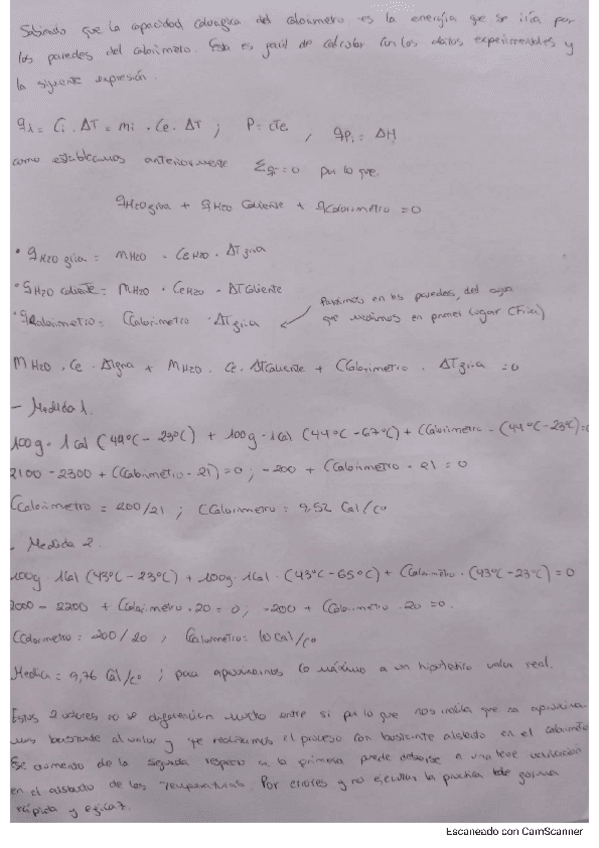 Sabiendo que la capacidad calorífica del calorímetro es la energía que se iría por
las paredes del calorímetro. Esta es fácil de calcular con los datos experimentales y
la siguiente expresión.
q_i = C_i · ΔT = m_i · Ce · ΔT ; P = cte , q_Pi = ΔH
como establecimos anteriormente Σq_i = 0 por lo que
q_H2O fría + q_H2O caliente + q_calorímetro = 0
• q_H2O fría = m_H2O · Ce_H2O · ΔT fría
• q_H2O caliente = m_H2O · Ce_H2O · ΔT caliente
• q_calorímetro = C calorímetro · ΔT fría
en las paredes, del agua
que medimos en primer lugar (Fría)
m_H2O · Ce · ΔT fría + m_H2O · Ce · ΔT caliente + C calorímetro · ΔT fría = 0
- Medida 1.
100g · 1 cal (44ºC - 23ºC) + 100g · 1 cal (44ºC - 67ºC) + C calorímetro · (44ºC - 23ºC) = 0
2100 - 2300 + (C calorímetro · 21) = 0 ; -200 + C calorímetro · 21 = 0
C calorímetro = 200/21 ; C calorímetro = 9,52 cal/ºC
- Medida 2.
100g · 1 cal (43ºC - 23ºC) + 100g · 1 cal · (43ºC - 65ºC) + C calorímetro · (43ºC - 23ºC) = 0
2000 - 2200 + C calorímetro · 20 = 0 ; -200 + C calorímetro · 20 = 0.
C calorímetro = 200/20 ; C calorímetro = 10 cal/ºC
Media = 9,76 cal/ºC ; para aproximarnos lo máximo a un hipotético valor real.
Estos 2 valores no se diferencian mucho entre sí por lo que nos indica que
bastante al valor y que realizamos el proceso con bastante aislado en el calorímetro
Ese aumento de la segunda respecto a la primera puede deberse a una leve variación
en el aislado de las temperaturas. Por errores y no ejecutar la práctica de forma
rápida y eficaz.
Escaneado con CamScanner